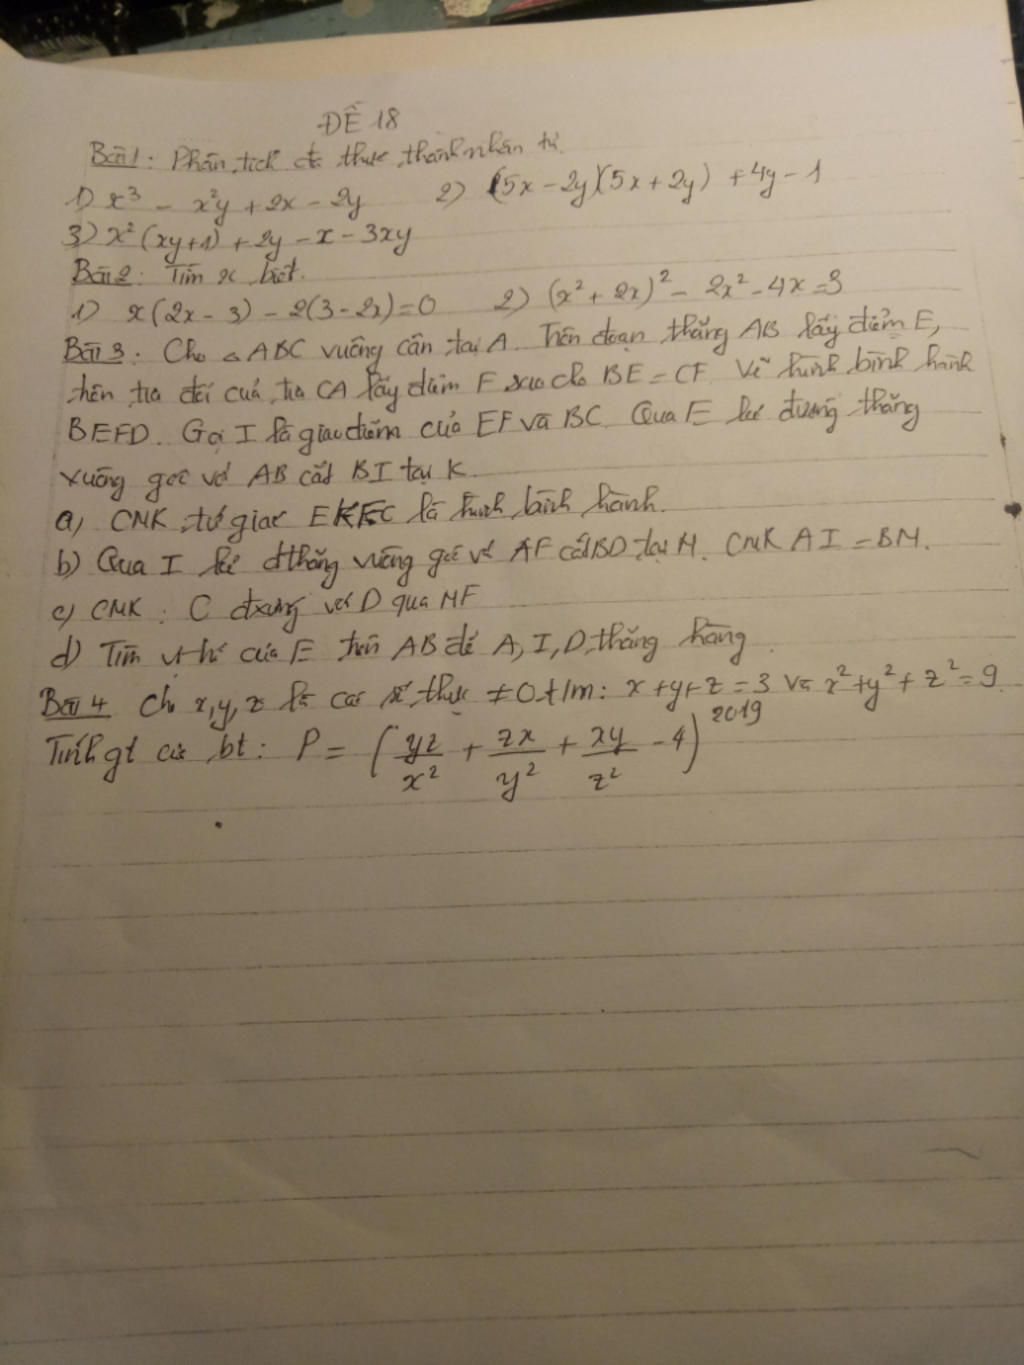 ĐỀ 18
Bài 1: Phân tích đt thức thành nhân tử.
1) x³ - x²y + 2x - 2y 2) (5x - 2y)(5x + 2y) + 4y - 1
3) x² (xy + 1) + 2y - x - 3xy
Bài 2: Tìm x biết.
1) x(2x - 3) - 2(3 - 2x) = 0 2) (x² + 2x)² - 2x² - 4x = 3
Bài 3: Cho △ ABC vuông cân tại A. Trên đoạn thẳng AB lấy điểm E,
trên tia đối của tia CA lấy điểm F sao cho BE = CF. Vẽ hình bình hành
BEFD. Gọi I là giao điểm của EF và BC. Qua E kẻ đường thẳng
vuông góc với AB cắt BI tại K.
a) CMR tứ giác EKFC là hình bình hành.
b) Qua I kẻ đthẳng vuông góc với AF cắt BD tại M. CMR AI = BM.
c) CMR: C đxứng với D qua MF
d) Tìm vị trí của E trên AB để A, I, D thẳng hàng.
Bài 4 Cho x, y, z là các số thực ≠ 0 t/m: x + y + z = 3 và x² + y² + z² = 9.
Tính gt của bt: P = (yz/x² + zx/y² + xy/z² - 4)²⁰¹⁹